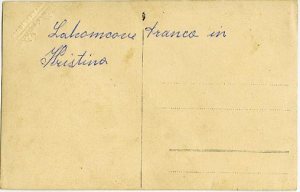 Lakomcove Franca in
Kristina